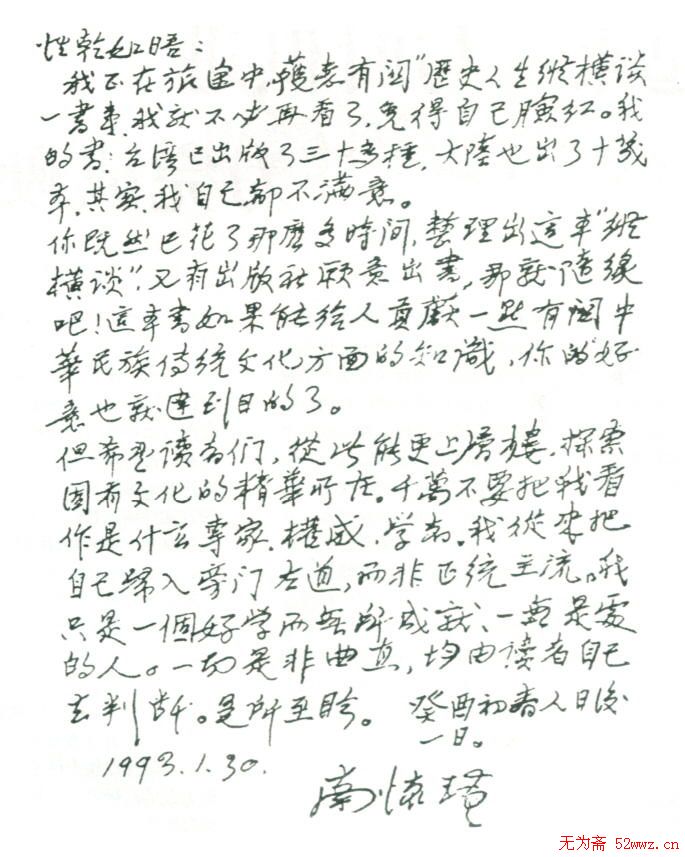 性乾如晤：
我正在旅途中，获悉有関"歷史人生纵横谈
一書事，我就不必再看了，免得自己臉红。我
的書，台湾已出版了三十多種，大陸也出了十幾
本，其实，我自己都不满意。
你既然已花了那麽多時间，整理出這本"纵
横谈"，又有出版社願意出書，那就随缘
吧！這本書如果能给人貢獻一點有関中
華民族傳統文化方面的知識，你的"好
意也就達到目的了。
但希望读者们，從此能更上層樓，探索
固有文化的精華所在。千萬不要把我看
作是什么專家、權威、学者。我從来把
自己归入旁门左道，而非正统主流。我
只是一個好学而無所成就、一無是處
的人。一切是非曲直，均由读者自己
去判断。是所至盼。 癸酉初春人日後
一日。
1993.1.30.
南懷瑾
无为斋 52wwz.cn